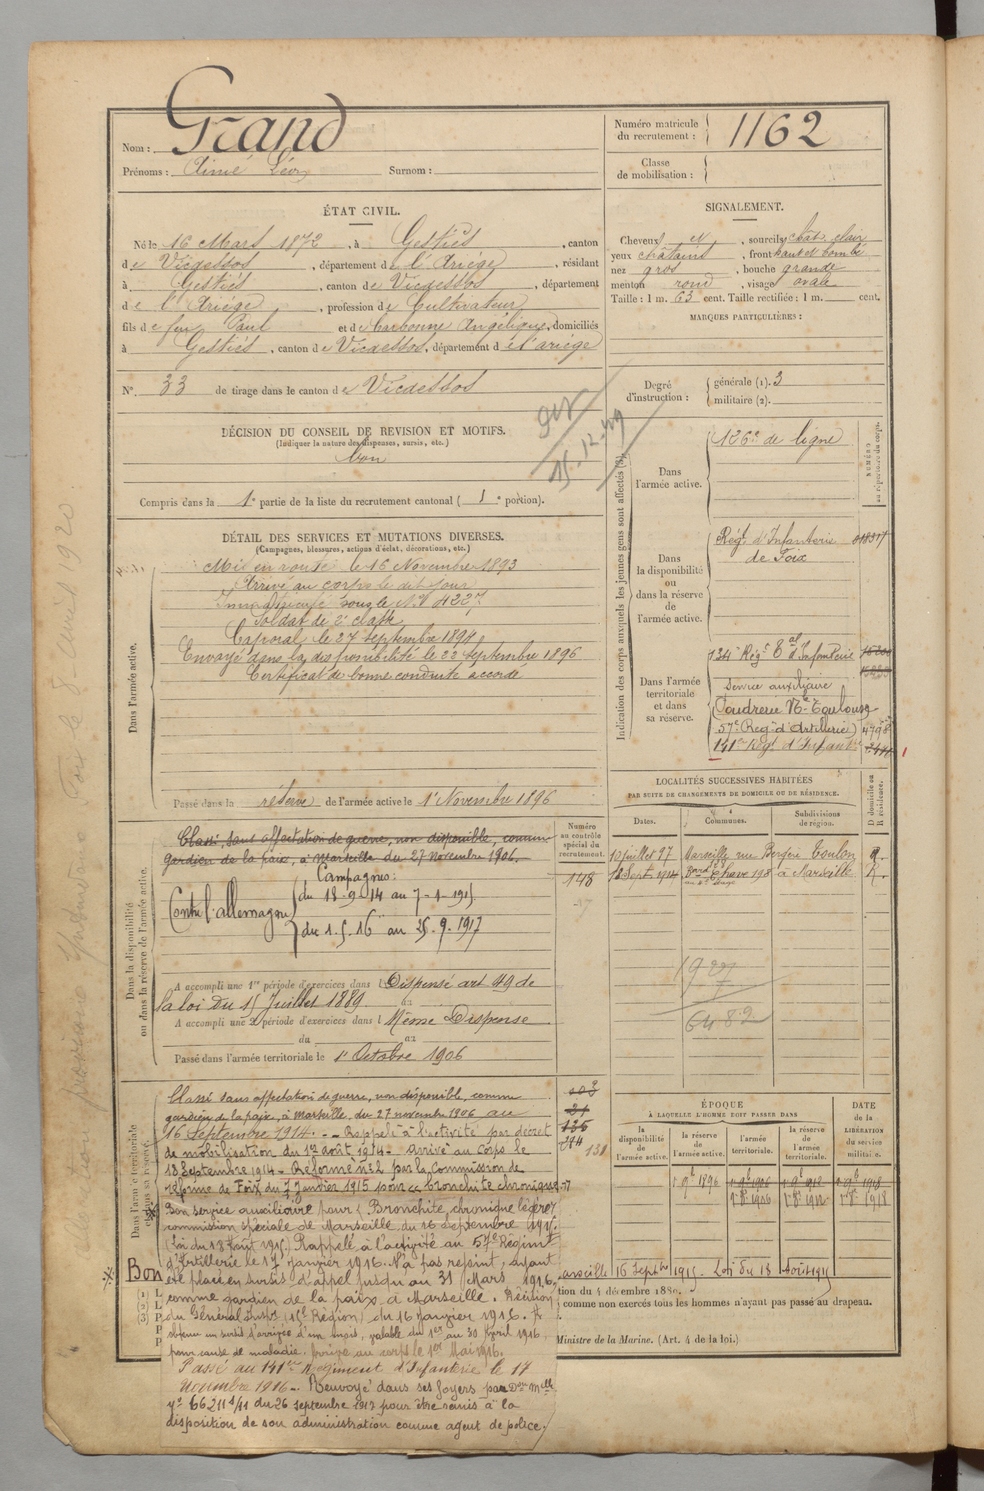 Nom : Grand
Prénoms : Aimé Léon Surnom :
Numéro matricule
du recrutement : 1162
Classe
de mobilisation :
ÉTAT CIVIL.
Né le 16 Mars 1872, à Gestiès, canton
de Vicdessos, département de l'Ariège, résidant
à Gestiès, canton de Vicdessos, département
de l'Ariège, profession de Cultivateur
fils de feu Paul et de Carbonne Angélique, domiciliés
à Gestiès, canton de Vicdessos, département de l'ariège
N° 33 de tirage dans le canton de Vicdessos
SIGNALEMENT.
Cheveux et, sourcils chât. clair
yeux châtains, front haut et bombé
nez gros, bouche grande
menton rond, visage ovale
Taille : 1 m. 63 cent. Taille rectifiée : 1 m. cent.
MARQUES PARTICULIÈRES :
Degré
d'instruction :
générale (1). 3
militaire (2).
DÉCISION DU CONSEIL DE REVISION ET MOTIFS.
(Indiquer la nature des dispenses, sursis, etc.)
bon
15.12.49
Compris dans la 1e partie de la liste du recrutement cantonal ( 1e portion).
DÉTAIL DES SERVICES ET MUTATIONS DIVERSES.
(Campagnes, blessures, actions d'éclat, décorations, etc.)
Dans l'armée active.
Mis en route le 16 Novembre 1893
Arrivé au corps le dit jour
Immatriculé sous le N° 4227
Soldat de 2e classe
Caporal le 27 septembre 1894
Envoyé dans la disponibilité le 22 septembre 1896
Certificat de bonne conduite accordé
Passé dans la réserve de l'armée active le 1er Novembre 1896
Indication des corps auxquels les jeunes gens sont affectés
NUMÉRO
au répertoire du corps.
Dans
l'armée active.
126e de ligne
Dans
la disponibilité
ou
dans la réserve
de
l'armée active.
Régt d'Infanterie
de Foix
Dans l'armée
territoriale
et dans
sa réserve.
134e Régt Eal d'Infanterie
service auxiliaire
(Poudrerie Nle Toulouse
57e Régt d'Artillerie) 4798
141e Régt d'Infantie
LOCALITÉS SUCCESSIVES HABITÉES
PAR SUITE DE CHANGEMENTS DE DOMICILE OU DE RÉSIDENCE.
Dates.
Communes.
Subdivisions
de région.
D domicile ou
R résidence.
10 juillet 97 Marseille rue Bergère Toulon R.
Bard Chave 198 à Marseille R.
6482
Dans la disponibilité
ou dans la réserve de l'armée active.
Numéro
au contrôle
spécial du
recrutement.
148
Classé, sans affectation de guerre, non disponible, comme
gardien de la paix, à Marseille du 27 novembre 1906.
Campagnes :
Contre l'allemagne
du 18-9-14 au 7-1-1915
du 1.5.16 au 26.9.1917
A accompli une 1re période d'exercices dans l Dispensé art 49 de
la loi Du 15 Juillet 1889 au
A accompli une 2e période d'exercices dans l Même Dispense
du au
Passé dans l'armée territoriale le 1er Octobre 1906
Dans l'armée territoriale
et dans sa réserve.
Classé sans affectation de guerre, non disponible, comme
gardien de la paix, à Marseille, du 27 novembre 1906 au
16 Septembre 1914. - Rappelé à l'activité par décret
de mobilisation du 1er août 1914 - arrivé au corps le
18 Septembre 1914 - Réformé n° 2 par la Commission de
réforme de Foix du 7 Janvier 1915 pour « bronchite chronique »
Bon service auxiliaire pour (Bronchite chronique légère)
commission spéciale de Marseille du 16 Septembre 1915.
(Loi du 18 Août 1915) Rappelé à l'activité au 57e Régiment
d'Artillerie le 17 Janvier 1916. N'a pas rejoint, ayant
été placé en sursis d'appel jusqu'au 31 Mars 1916,
comme gardien de la paix, à Marseille. Décision
du Général Insps (15e Région) du 16 Janvier 1916. A
obtenu un sursis d'arrivée d'un mois, valable du 1er au 30 Avril 1916
pour cause de maladie. Arrivé au corps le 1er Mai 1916.
Passé au 141ème Régiment d'Infanterie le 17
Novembre 1916 -. Renvoyé dans ses foyers par Don Melle
n° 66211 1/11 du 26 septembre 1917 pour être remis à la
disposition de son administration comme agent de police.
Bon
ÉPOQUE
À LAQUELLE L'HOMME DOIT PASSER DANS
la
disponibilité
de
l'armée active.
la réserve
de
l'armée active.
l'armée
territoriale.
la réserve
de
l'armée
territoriale.
DATE
de la
LIBÉRATION
du service
militaire.
1 9bre 1896
arseille 16 Septbre 1915 - Loi du 18 Août 1915
tion du 4 décembre 1889.
comme non exercés tous les hommes n'ayant pas passé au drapeau.
Ministre de la Marine. (Art. 4 de la loi.)